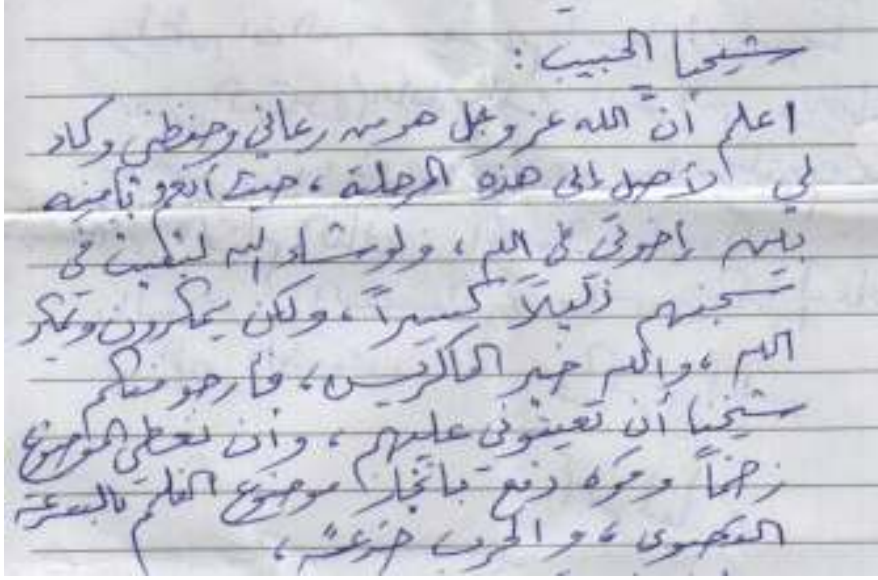 شيخنا الحبيب :
اعلم أنّ الله عز وجل هو من رعاني وحفظني وكاد
لي لأصل إلى هذه المرحلة ، حيث أنعم ثانية
بين إخوتي في الله ، ولو شاء الله لبقيت في
سجنهم ذليلاً كسيراً ، ولكن يمكرون ويمكر
الله ، والله خير الماكرين ، فأرجو منكم
شيخنا أن تعينوني عليهم ، وأن نعطي الموضوع
زخماً وقوة دفع بإنجاز موضوع الفلم بالسرعة
القصوى ، و الحرب خدعة ،